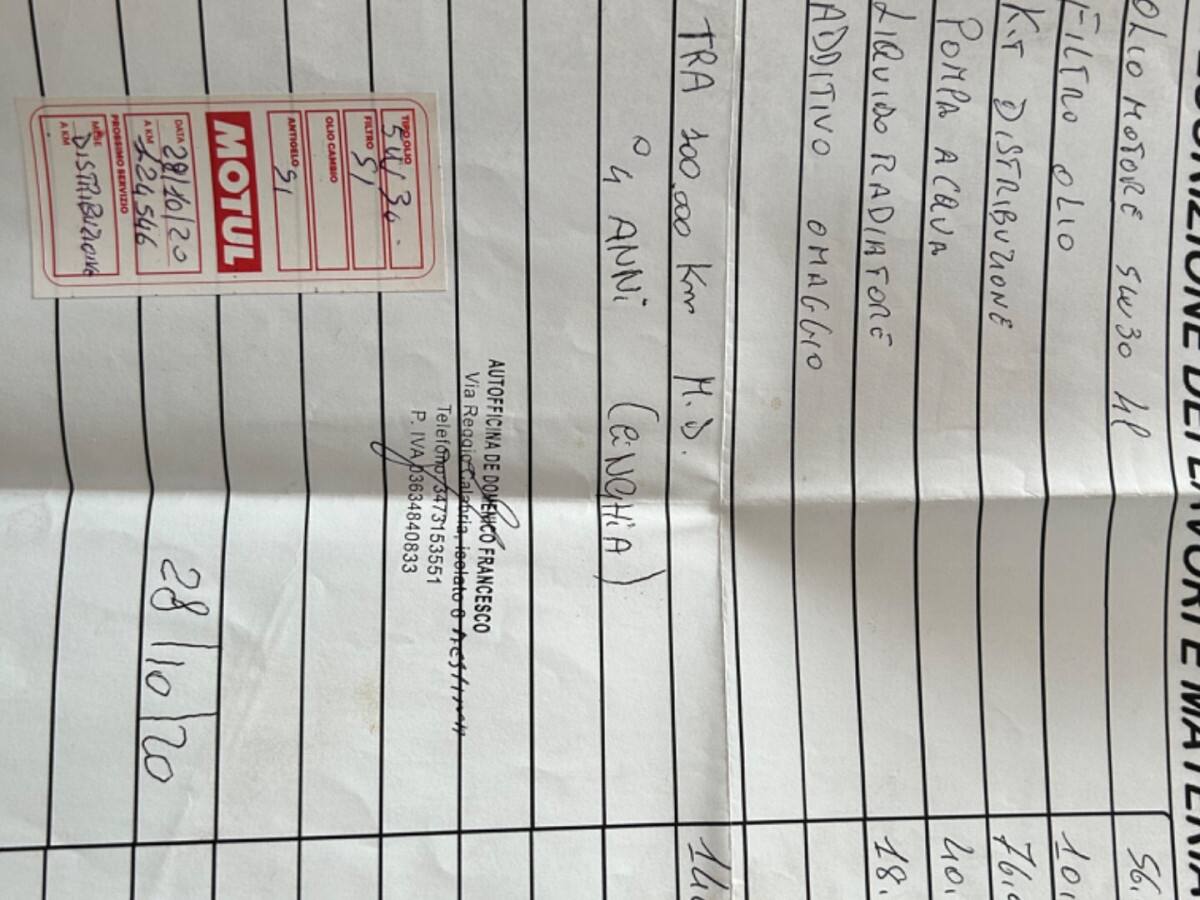 OLIO MOTORE 5W30 4l 56.
FILTRO OLIO 10.
KiT DISTRIBUZIONE 76.
POMPA ACQUA 40.
LIQUIDO RADIATORE 18.
ADDITIVO OMAGGIO
TRA 100.000 Km M.D. 14
O 4 ANNi (CiNGHiA)
AUTOFFICINA DE DOMENICO FRANCESCO
Via Reggio Calabria, isolato 8
Telefono 3473153551
P. IVA 03634840833
28/10/20
TIPO OLIO 5W/30.
FILTRO SI
OLIO CAMBIO
ANTIGELO SI
MOTUL
DATA 28/10/20
A KM 124546
PROSSIMO SERVIZIO
DISTRIBUZIONE
A KM